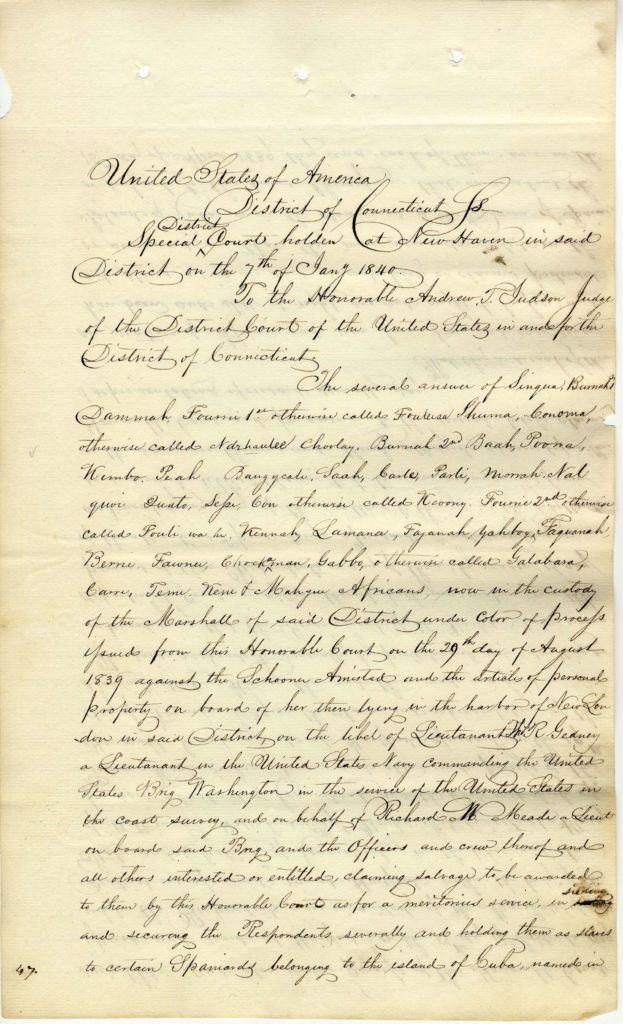 United States of America
District of Connecticut Ss
District
Special ^ Court holden at New Haven in said
District on the 7th of Jany 1840.
To the Honorable Andrew T. Judson Judge
of the District Court of the United States in and for the
District of Connecticut,
The several answer of Singua, Burnah 1st
Dammah, Fourrie 1st otherwise called Shuma, Conoma,
otherwise called Chorlay, Burnah 2nd Baah, Poona,
Kimbo, Peah Banggeah, Saah, Carle, Parli, Morrah, Nal
quivi Quato, Sesse, Con otherwise called Kevony. Fourrie 2nd otherwise
called Fouli wa ha, Kennah, Lamanea, Fajanah, Yahboy, Faguanah,
Berrie, Fawnu, Chockaman, Gabbo, otherwise called Galabara,
Carre, Teme, Kene & Mahgue Africans, now in the custody
of the Marshall of said District under color of process
issued from this Honorable Court on the 29th day of August
1839 against the Schooner Amistad and the article of personal
property on board of her then lying in the harbor of New Lon-
don in said District, on the libel of Lieutenant R. Gedney
a Lieutanant in the United States Navy commanding the United
States Brig Washington in the service of the United States in
the coast survey, and on behalf of Richard W Meade a Lieut
on board said Brig, and the Officers and crew thereof and
all others interested or entitled, claiming salvage to be awarded
to them by this Honorable Court as for a meritorius service, in
and securing the Respondents severally and holding them as slaves
47. to certain Spaniards belonging to the island of Cuba, named in